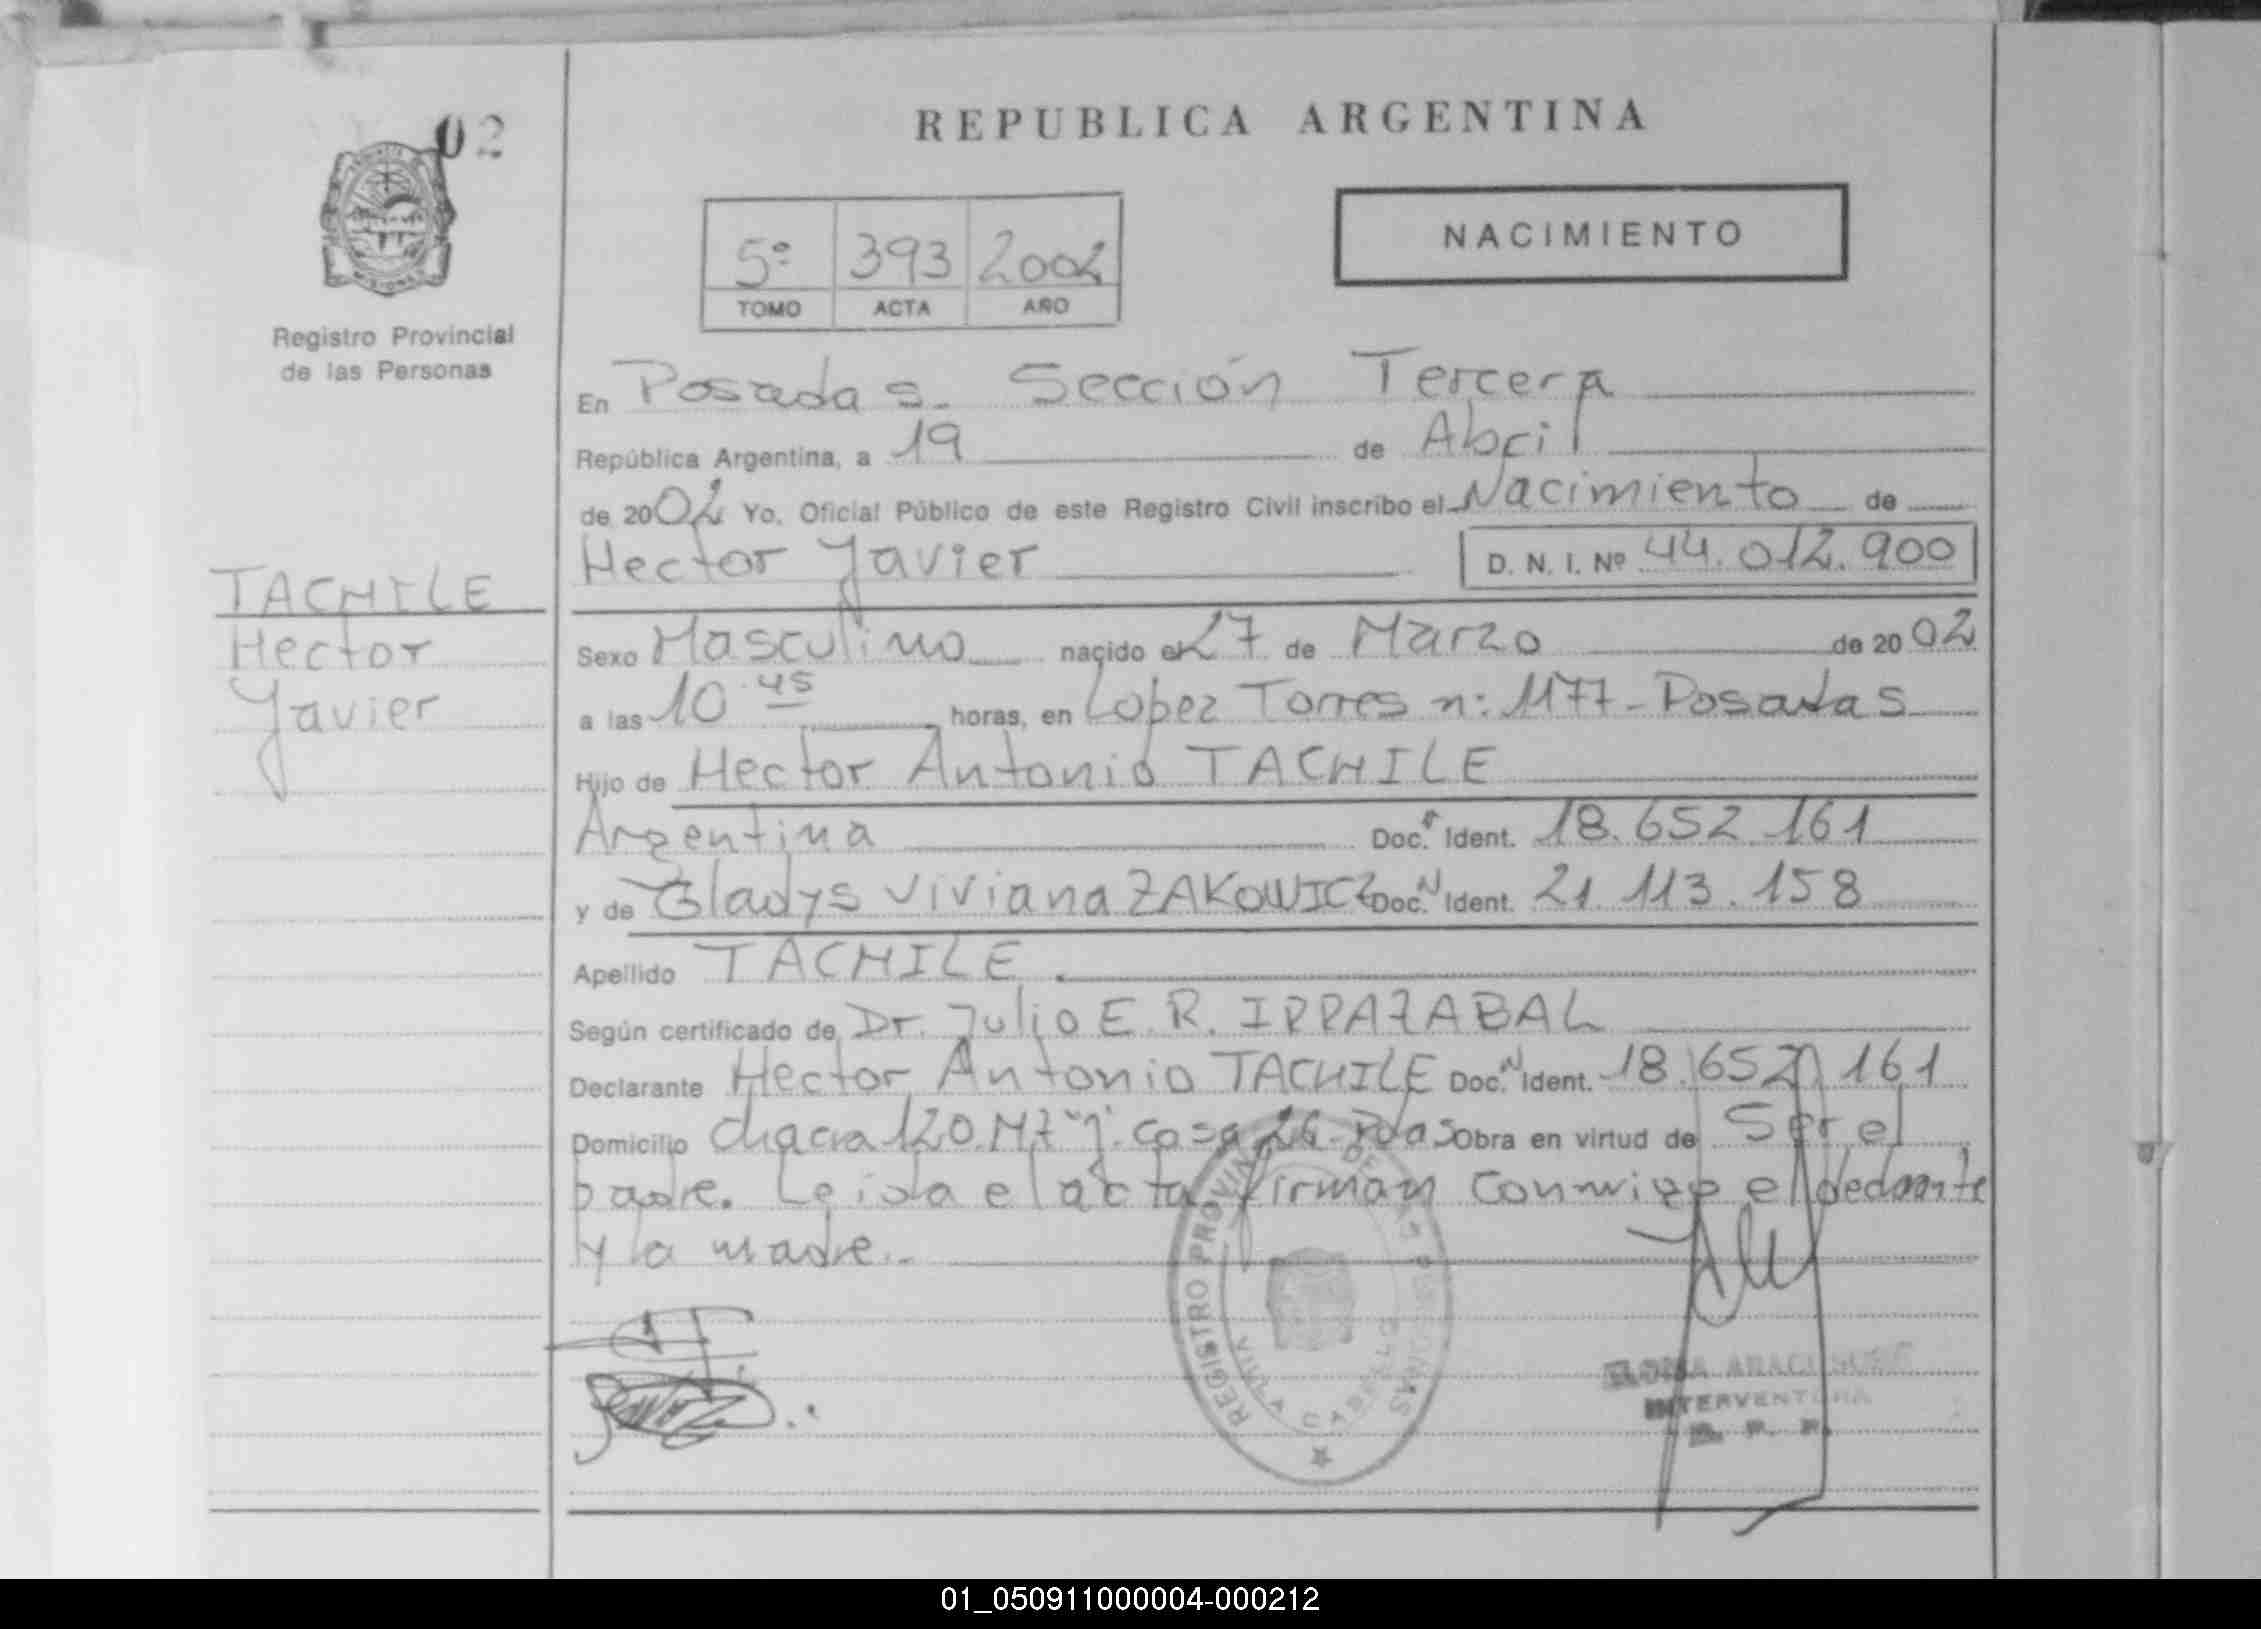 02
REPUBLICA ARGENTINA
NACIMIENTO
5º 393 2002
TOMO ACTA AÑO
Registro Provincial
de las Personas
En Posadas. Sección Tercera
República Argentina, a 19 de Abril
de 2002 Yo, Oficial Público de este Registro Civil inscribo el Nacimiento de
Hector Javier D. N. I. Nº 44.012.900
TACHILE
Hector
Javier
Sexo Masculino nacido el 27 de Marzo de 2002
a las 10.45 horas, en Lopez Torres n: 1177 - Posadas
Hijo de Hector Antonio TACHILE
Argentina Doc. Ident. 18.652.161
y de Gladys Viviana ZAKOWICZ Doc. N Ident. 21.113.158
Apellido TACHILE.
Según certificado de Dr. Julio E. R. IRRAZABAL
Declarante Hector Antonio TACHILE Doc. N Ident. 18.652.161
Domicilio chacra 120. MZ "J". casa 26 - Pdas Obra en virtud de Ser el
padre. Leida el acta firman conmigo el
y la madre..
REGISTRO PROVINCIAL DE LAS PERSONAS
MISIONES
INTERVENTORA
R. P. P.
01_050911000004-000212